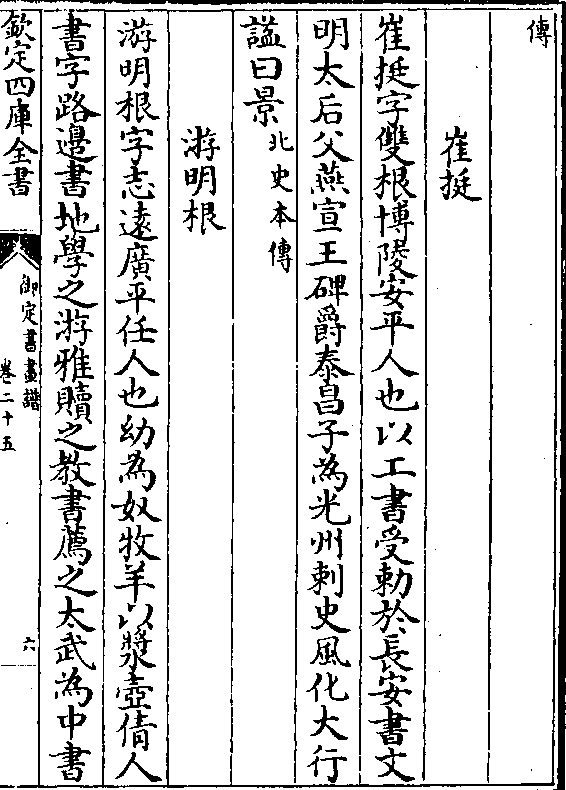 傳
崔挺
崔挺字雙根博陵安平人也以工書受勅於長安書文
明太后父燕宣王碑爵泰昌子為光州刺史風化大行
諡曰景北史本傳
游明根
游明根字志遠廣平任人也幼為奴牧羊以漿壺倩人
書字路邊書地學之游雅贖之教書薦之太武為中書
欽定四庫全書
御定書畫譜
卷二十五
六